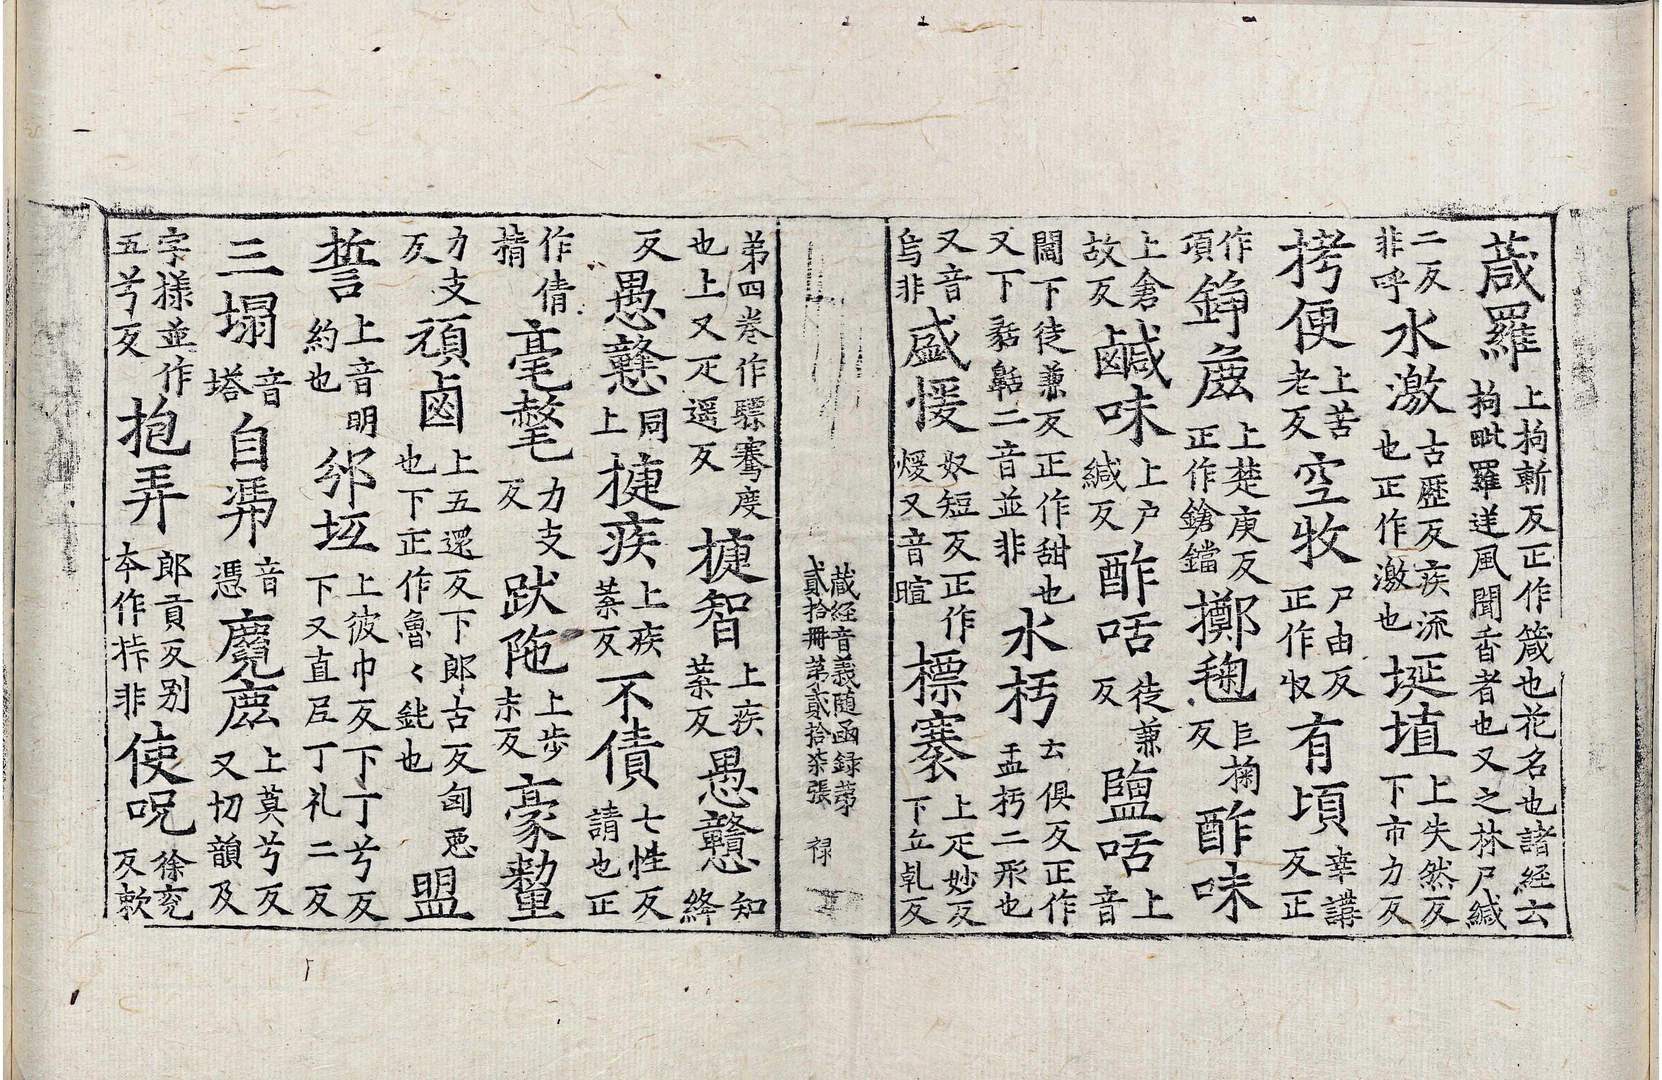 葴羅上拘斬反正作箴也花名也諸經云拘毗羅送風聞香者也又之林尸緘
二反非呼水激古歷反疾流也正作激也埏埴上失然反下市力反
拷便上苦老反空牧尸由反正作收有頃幸講反正
作項錚𨪙上楚庚反正作鎗鐺擲毱巨掬反酢味
上倉故反鹹味上户緘反酢咶徒兼反鹽咶上音
閻下徒兼反正作甜也又下䑛𦧧二音並非水杇云俱反正作盂杇二形也
又音烏非盛愋奴短反正作煖又音暄標褰上疋妙反下丘乹反
藏經音義随函録苐貳拾冊苐貳拾柒張 禄
苐四卷作驃騫度也上又疋遥反㨗智上疾葉反愚戇知絳
反愚戇同上㨗疾上疾葉反不倩七性反請也正
作倩㨗毫氂力支反跋陁上步末反豪𣯛
力支反頑鹵上五還反下郎古反𠧟惡也下正作魯〻鈍也盟
誓上音明約也邠坻上彼巾反下丁兮反下又直尼丁礼二反
三塌音塔自馮音憑麑鹿上莫兮反又切韻及
字樣並作五兮反抱弄郎貢反别夲作挊非使呪徐兖反欶